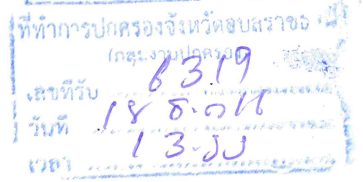 ที่ทำการปกครองจังหวัดอุบลราชธ
(กลุ่มงานปกครอง)
เลขที่รับ 6319
วันที่ 18 ธ.ค.
เวลา 13.